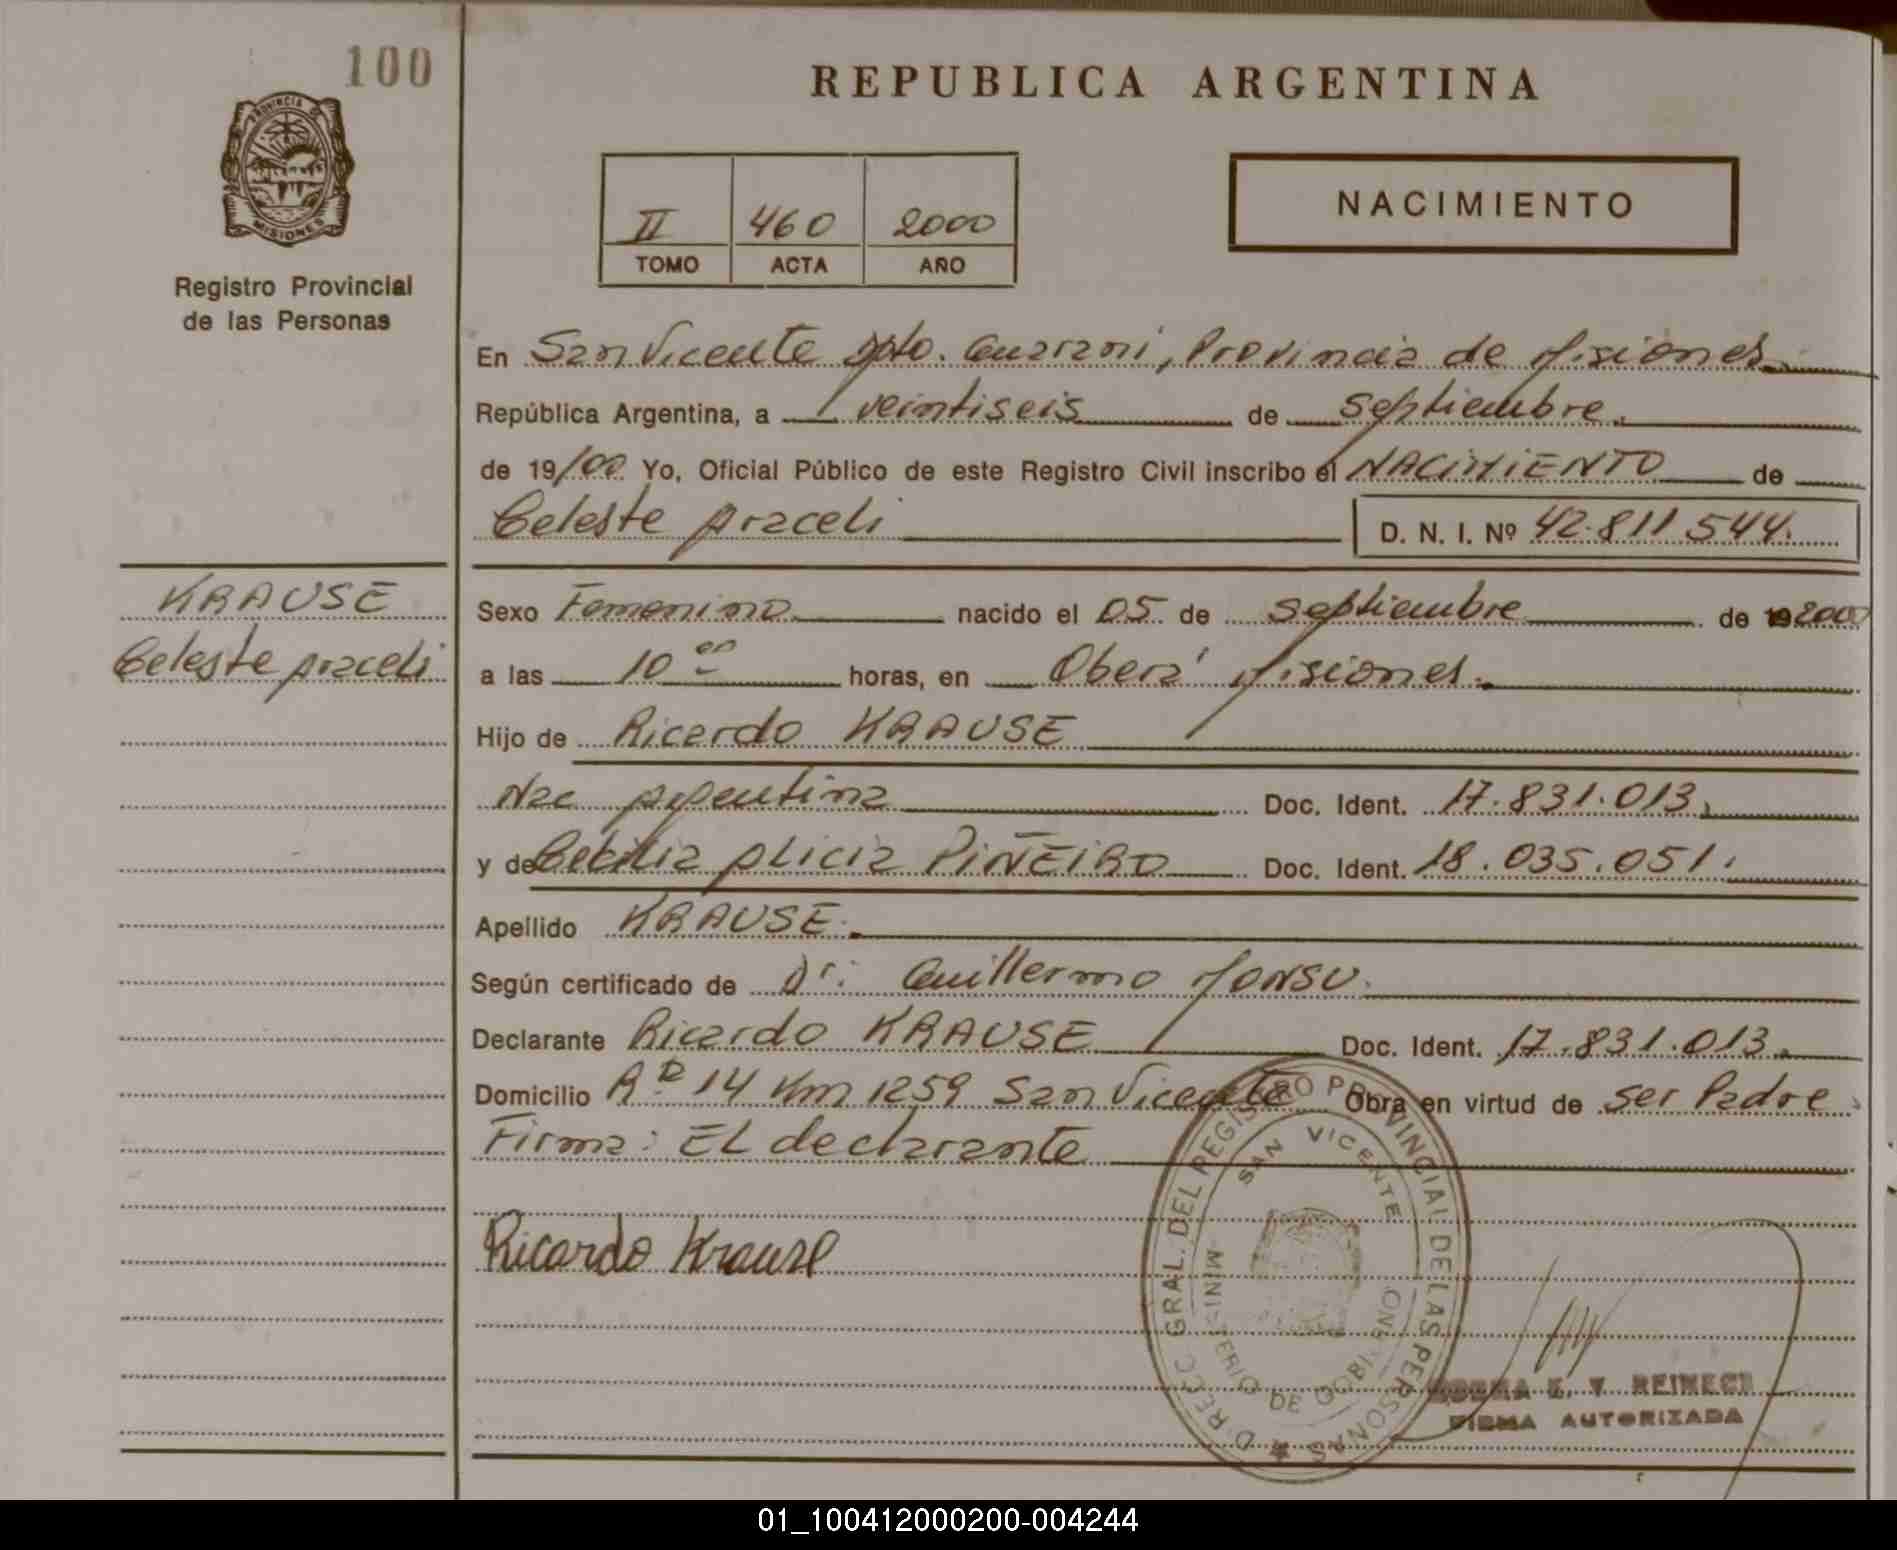 100
REPUBLICA ARGENTINA
PROVINCIA DE
MISIONES
Registro Provincial
de las Personas
II 460 2000
TOMO ACTA AÑO
NACIMIENTO
En San Vicente Dpto. Guaraní, Provincia de Misiones.
República Argentina, a veintiseis de Septiembre.
de 19/00 Yo, Oficial Público de este Registro Civil inscribo el NACIMIENTO de
Celeste Araceli D. N. I. Nº 42.811.544.
KRAUSE
Celeste Araceli
Sexo Femenino nacido el 05 de Septiembre de 2000
a las 10 00 horas, en Oberá Misiones.
Hijo de Ricardo KRAUSE
Nac Argentina Doc. Ident. 17.831.013.
y de Cecilia Alicia PIÑEIRO Doc. Ident. 18.035.051.
Apellido KRAUSE.
Según certificado de Dr: Guillermo MONSU.
Declarante Ricardo KRAUSE Doc. Ident. 17.831.013.
Domicilio 14 Km 1259 San Vicente Obra en virtud de ser Padre.
Firma: EL declarante
Ricardo Krause
DIRECC GRAL. DEL REGISTRO PROVINCIAL DE LAS PERSONAS
SAN VICENTE
MINISTERIO DE GOBIERNO
E. V. REINECK
FIRMA AUTORIZADA
01_100412000200-004244